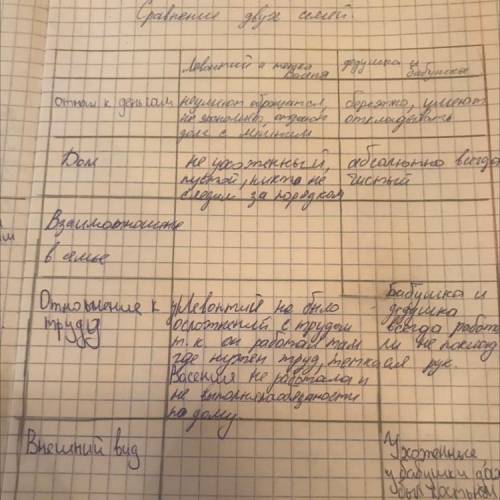 Сравнение двух семей.
Левонтий и тетка Васеня
дедушка и бабушка
отнош к деньгам
неумеют обращатся,
не экономят, отдают
долг с
бережно, умеют
откладывать
Дом
не ухоженный,
пустой, никто не
следит за порядком
абсолютно всегда
чистый
Взаимоотноше
в семье
Отношение к
труду
Левонтий не было
осложнений с трудом
т.к он работал там
где нужен труд, тетка
Васения не работала и
не выполняла обязаности
по дому.
бабушка и
дедушка
всегда работа
ли не поклад
ая рук.
Внешний вид
Ухоженные
у бабушки да
был